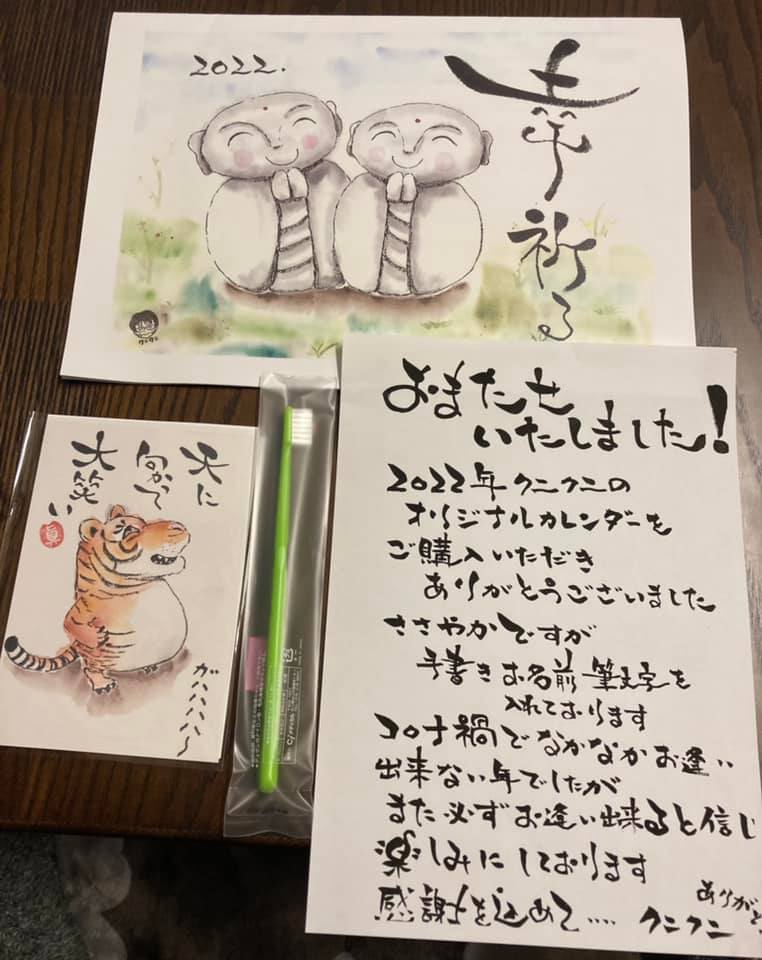 2022.
幸
祈る
クニクニ
天に
向かって
大笑い
ガハハハハ〜
おまたせ
いたしました!
2022年クニクニの
オリジナルカレンダーを
ご購入いただき
ありがとうございました
ささやかですが
手書きお名前筆文字を
入れております
コロナ禍でなかなかお逢い
出来ない年でしたが
また必ずお逢い出来ると信じ
楽しみにしております
感謝を込めて....
ありがと
クニクニ